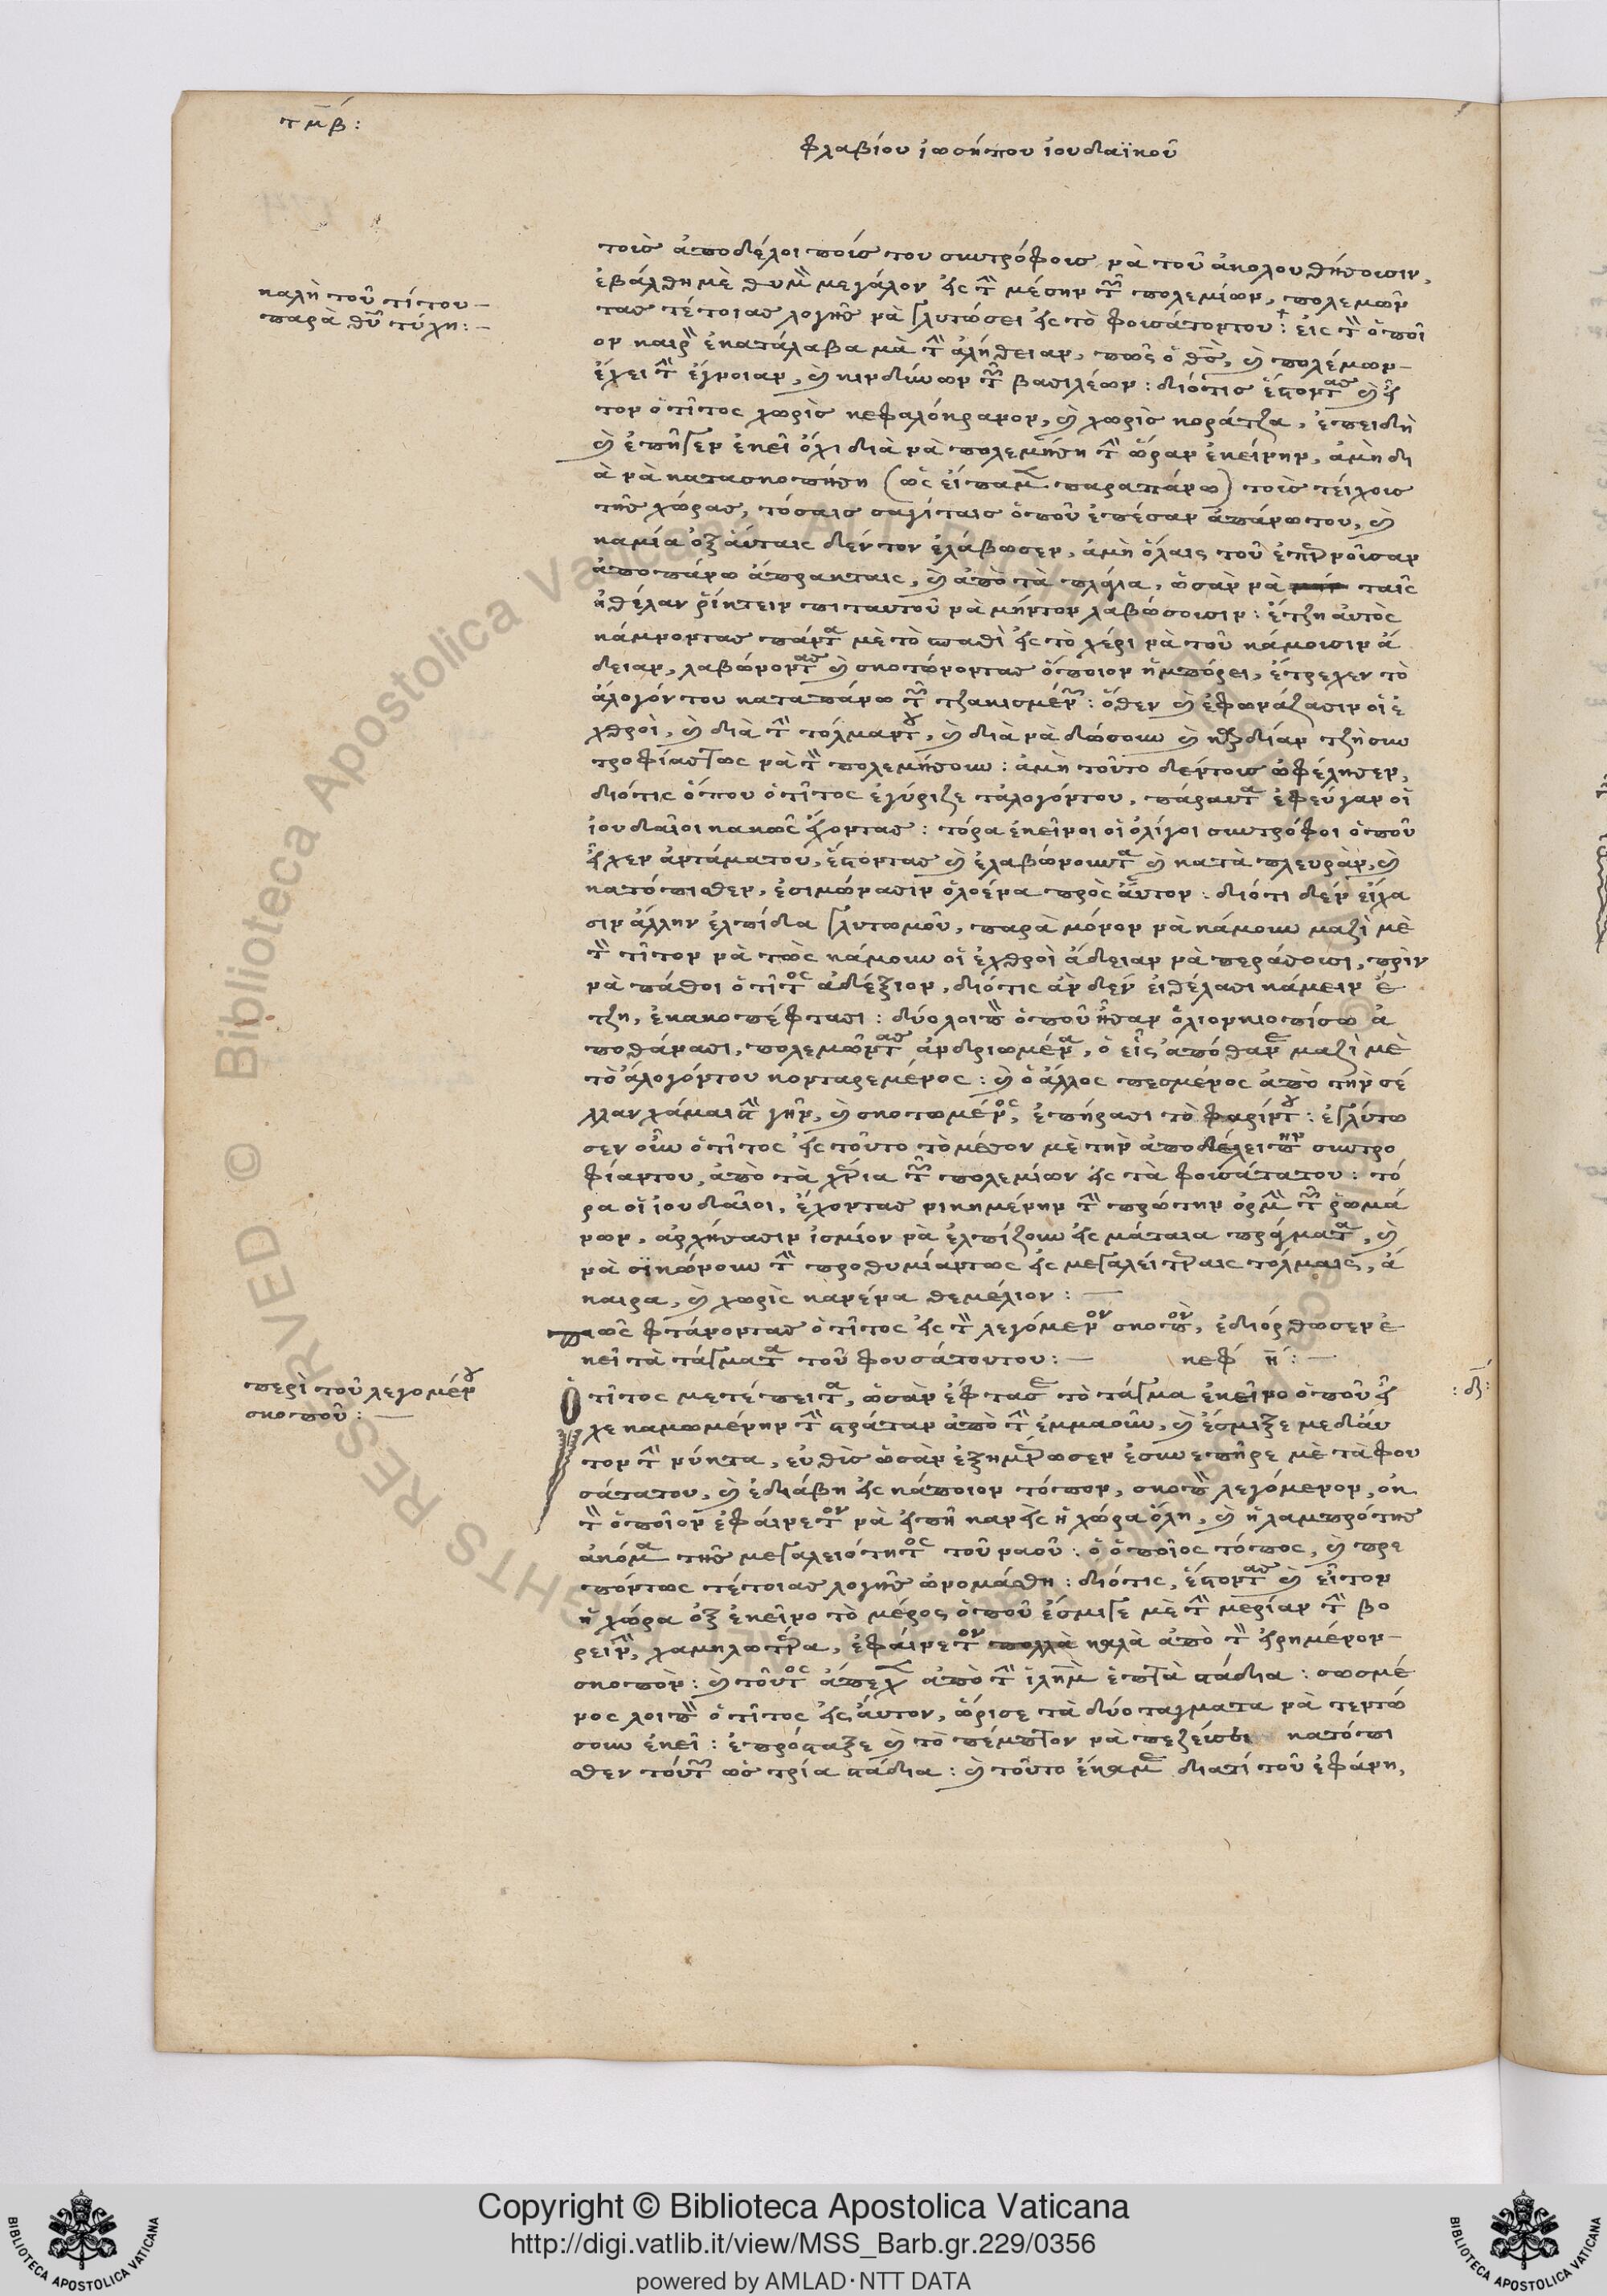 τμβ:
φλαβίου ἰωσήπου ἰουδαϊκοῦ
καλὴ τοῦ τίτου –
παρὰ θῦ τύχη: –
τοὺς ἀποδέλοι ποὺς του συντρόφους νὰ τοῦ ἀκολουθήσουσιν,
ἐβάλθη μὲ θυμ μεγάλον εἰς τ μέσην τ πολεμίων, πολεμῶν
τας τέτοιας λογῆς νὰ γλυτώσει εἰς τὸ φουσάτον του: εἰς τ ὁποῖ
ον καιρ ἐκατάλαβα μὰ τ ἀλήθειαν, πῶς ὁ θς, καὶ πολέμων –
ἔχει τ ἔγνοιαν, καὶ κινδύνων τ βασιλέων: διότις ἔστοντας καὶ εἶ
τον ὁ τῖτος χωρὶς κεφαλόκρανον, καὶ χωρὶς κοράτζα, ἐπειδὴ
καὶ ἐπῆγεν ἐκεῖ ὄχι διὰ νὰ πολεμήση τ ὥραν ἐκείνην, ἀμὴ δι
ὰ νὰ κατασκοπήση (ὡς εἴπαμ παραπάνω) τοὺς τείχους
τῆς χώρας, τόσαις σαγίταις ὁποῦ ἐπέσαν ἀπάνω του, καὶ
καμία ὀξ αὐταις δέν τον ἐλάβωσεν, ἀμὴ ὅλαις τοῦ ἐπερνοῦσαν
ἀποπάνω ἄπρακταις, καὶ ἀπὸ τὰ πλάγια, ὡσὰν νὰ ταῖς
ἠθέλαν ῥίκτειν πιταυτοῦ νὰ μήντον λαβώσουσιν: ἔτζη αὐτὸς
κάμνοντας πάντα μὲ τὸ σπαθὶ εἰς τὸ χέρι νὰ τοῦ κάμουσιν ἄ
δειαν, λαβώνοντας καὶ σκοτώνοντας ὅποιον ἠμπόρει, ἔτρεχεν τὸ
ἄλογόν του καταπάνω τ τζακισμέν: ὅθεν καὶ ἐφωνάζασιν οἱ ἐ
χθροὶ, καὶ διὰ τ τόλμαν τ, καὶ διὰ νὰ δώσουν καὶ καρδίαν τζὴ συν
τροφίας τως νὰ τ πολεμήσουν: ἀμὴ τοῦτο δέντους ὠφέλησεν,
διότις ὅπου ὁ τῖτος ἐγύριζε τἄλογόντου, πάραυτα ἐφεύγαν οἱ
ἰουδαῖοι κακῶς ἔχοντας: τόρα ἐκεῖνοι οἱ ὀλίγοι συντρόφοι ὁποῦ
εἶχεν ἀντάματου, ἔστοντας καὶ ἐλαβώνουντα καὶ κατὰ πλευρὰν, καὶ
κατόπισθεν, ἐσιμώνασιν ὁλοένα πρὸς αὐτον: διότι δὲν εἴχα
σιν ἄλλην ἐλπίδα γλυτωμοῦ, παρὰ μόνον νὰ κάμουν μαζὶ μὲ
τ τῖτον νὰ τῶς κάμουν οἱ ἐχθροὶ ἄδειαν νὰ περάσουσι, πρὶν
νὰ πάθοι ὁ τῖτος ἀδέξιον, διότις ἀν δὲν εἰθέλασι κάμειν ἔ
τζη, ἐκακοπέφτασι: δύο λοιπ ὁποῦ ἦσαν ὀλιορκιοπίσω ἀ
ποθάνασι, πολεμῶντας ἀνδριωμένα, ὁ εἷς ἀπόθανε μαζὶ μὲ
τὸ ἄλογόντου κονταρεμένος: καὶ ὁ ἄλλος πεσμένος ἀπὸ τὴν σέ
λλαν χάμαι στ γῆν, καὶ σκοτωμένος, ἐπήρασι τὸ φαρίντ: ἐγλύτω
σεν οὖν ὁ τῖτος εἰς τοῦτο τὸ μέσον μὲ τὴν ἀποδέλειπην συντρο
φίαντου, ἀπὸ τὰ χέρια τ πολεμίων εἰς τὰ φουσάτατου: τό
ρα οἱ ἰουδαῖοι, ἔχοντας νικημένην τ πρώτην ὁρμ τ ῥωμά
νων, ἀρχήσασιν ἰσμίον νὰ ἐλπίζουν εἰς μάταια πράγματα, καὶ
νὰ σϊκώνουν τ προθυμίαντως εἰς μεγαλείτεραις τόλμαις, ἄ
καιρα, καὶ χωρὶς κἀνένα θεμέλιον: –
πῶς φτάνοντας ὁ τῖτος εἰς τ λεγόμενον σκοπὸν, ἐδιόρθωσεν ἐ
κεῖ τὰ τάγματα τοῦ φουσάτουτου: – κεφ η: –
περὶ τοῦ λεγομέν
σκοποῦ: –
Ὁ τῖτος μετέπειτα, ὡσὰν ἔφτασε τὸ τάγμα ἐκεῖνο ὁποῦ εἶ
:δ:
χε καμωμένην τ στράταν ἀπὸ τ ἐμμαοῦν, καὶ ἔσμιξε μεδαύ
τον τ νύκτα, εὐθὺς ὡσὰν ἐξημέρωσεν ἐσυνεπῆρε μὲ τὰ φου
σάτατου, καὶ ἐδιάβη εἰς κάποιον τόπον, σκοπ λεγόμενον, ὀκ
τ ὁποῖον ἐφαίνετον νὰ εἰπῆ καν εἰς ἡ χώρα ὅλη, καὶ ἡ λαμπρότης
ἀκόμα τῆς μεγαλειότητος τοῦ ναοῦ: ὁ ὁποῖος τόπος, καὶ πρε
πόντως τέτοιας λογῆς ὠνομάσθη: διότις, ἔστοντας καὶ εἶτον
ἡ χώρα ὀξ ἐκεῖνο τὸ μέρος ὁποῦ ἔσμιγε μὲ τ μερίαν τ βο
ρειν, χαμηλωτέρα, ἐφαίνετον πολλὰ καλὰ ἀπὸ τ εἰρημένον –
σκοπὸν: καὶ τοῦτος ἄπεχ ἀπὸ τ ἱλημ ἑπτὰ στάδια: σωσμέ
νος λοιπ ὁ τῖτος εἰς αὐτον, ὥρισε τὰ δύο ταγματα νὰ τεντώ
σουν ἐκεῖ: ἐπρόσταξε καὶ τὸ πέμπτον νὰ πεζεύσει κατόπι
σθεν τούτ ὡς τρία στάδια: καὶ τοῦτο ἔκαμε διατί τοῦ ἐφάνη,
Copyright © Biblioteca Apostolica Vaticana
http://digi.vatlib.it/view/MSS_Barb.gr.229/0356
powered by AMLAD·NTT DATA
BIBLIOTECA APOSTOLICA VATICANA
BIBLIOTECA APOSTOLICA VATICANA